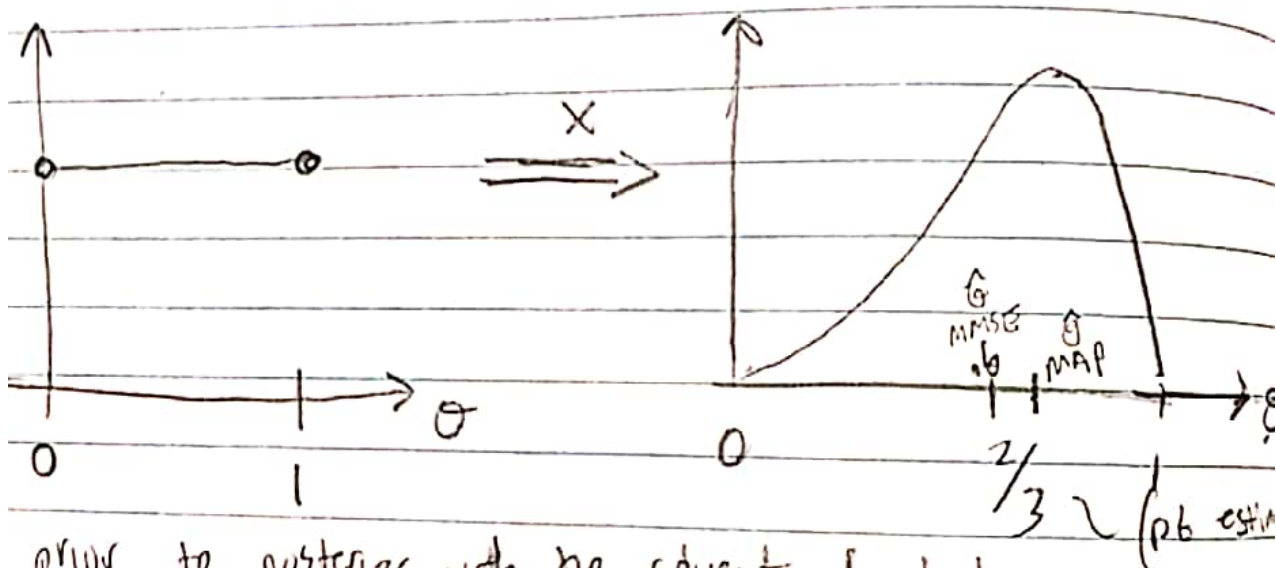 X
θ̂ θ̂
MMSE MAP
.6
θ
0 1
0 2/3 (pt estim
prior to posterior with